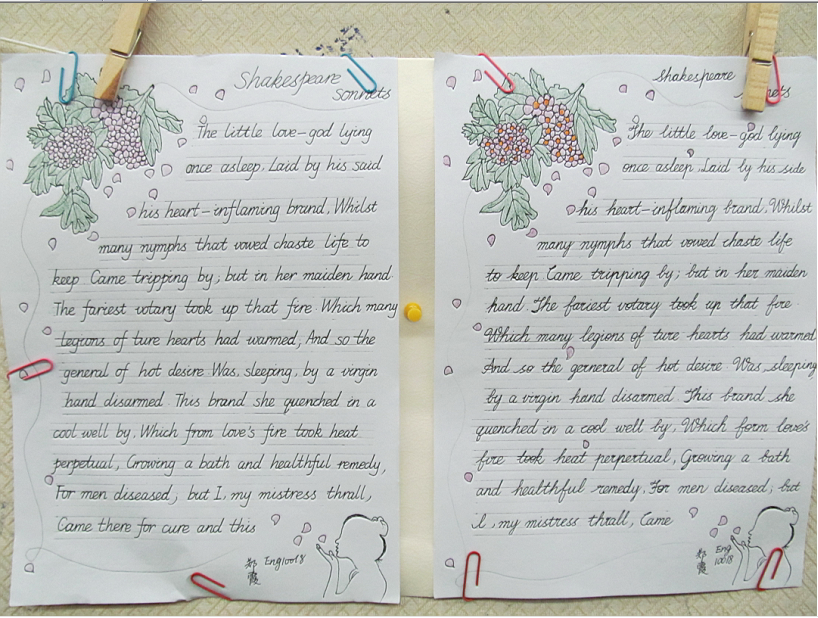 Shakespeare
sonnets
The little love-god lying
once asleep, Laid by his said
his heart-inflaming brand, Whilst
many nymphs that vowed chaste life to
keep Came tripping by; but in her maiden hand
The fariest votary took up that fire Which many
legions of ture hearts had warmed, And so the
general of hot desire Was, sleeping, by a virgin
hand disarmed. This brand she quenched in a
cool well by, Which from love's fire took heat
perpetual, Growing a bath and healthful remedy,
For men diseased; but I, my mistress thrall,
Came there for cure and this
郑霞 Eng1001 8
shakespeare
The little love-god lying
once asleep, Laid by his side
his heart-inflaming brand, Whilst
many nymphs that vowed chaste life
to keep Came tripping by; but in her maiden
hand The fariest votary took up that fire
Which many legions of ture hearts had warmed
And so the gerneral of hot desire Was, sleeping
by a virgin hand disarmed. This brand she
quenched in a cool well by, Which form love's
fire took heat perpertual, Growing a bath
and healthful remedy, For men diseased; but
I, my mistress thrall, Came
郑霞 Eng
1001 8